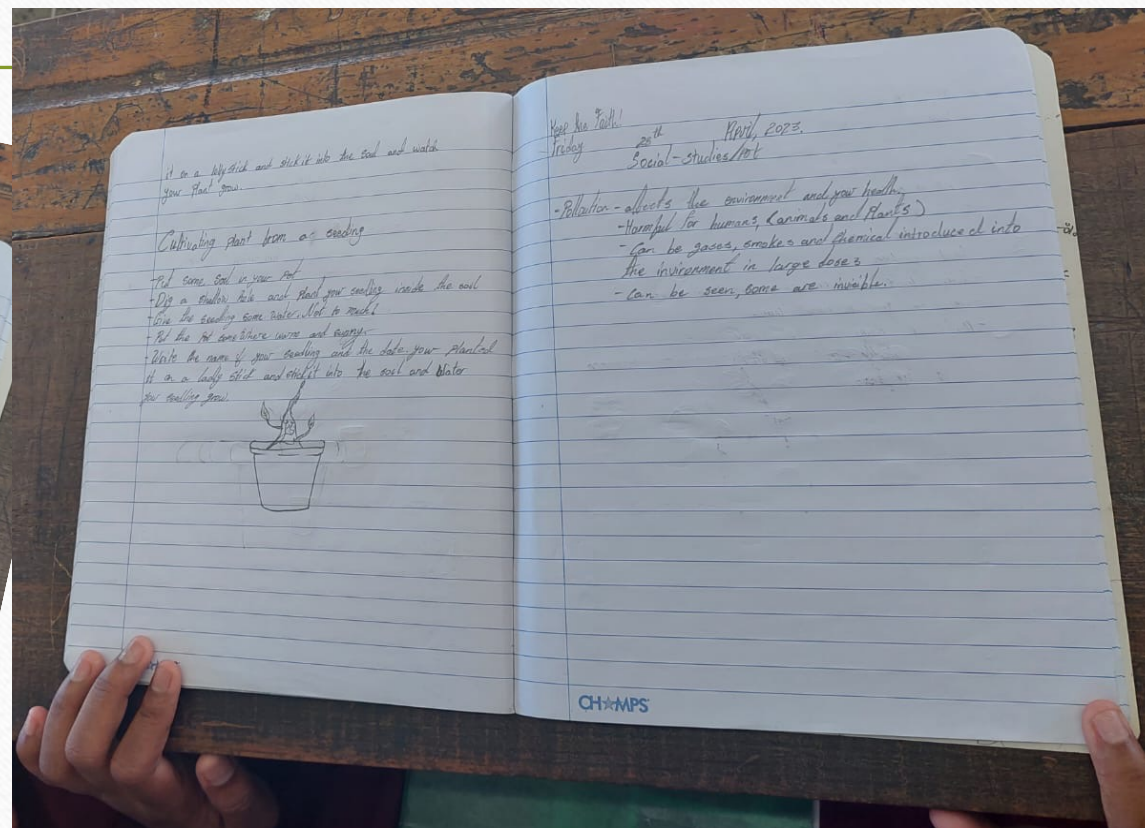 it on a lolly stick and stick it into the soil and watch
your plant grow.
Cultivating plant from a seedling
-Put some soil in your pot
-Dig a shallow hole and plant your seedling inside the soil
-Give the seedling some water. Not to much!
-Put the pot somewhere warm and sunny.
-Write the name of your seedling and the date your planted
it on a lolly stick and stick it into the soil and water
your seedling grow.
Keep the Faith!
Friday 28th April, 2023.
Social-studies/
-Pollution - affects the environment and your health.
-Harmful for humans, (animals and Plants)
- Can be gases, smokes and chemical introduced into
the invironment in large doses
- Can be seen, some are invisible.
CHAMPS